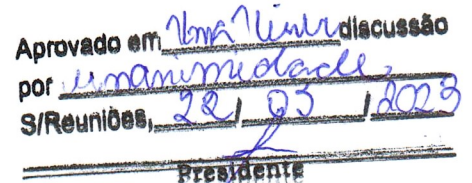 Aprovado em Uma Única discussão
por unanimidade,
S/Reuniões, 22/ 03 / 2023
Presidente